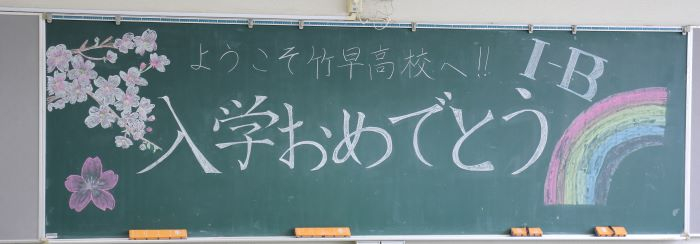 ようこそ竹早高校へ!!
I-B
入学おめでとう